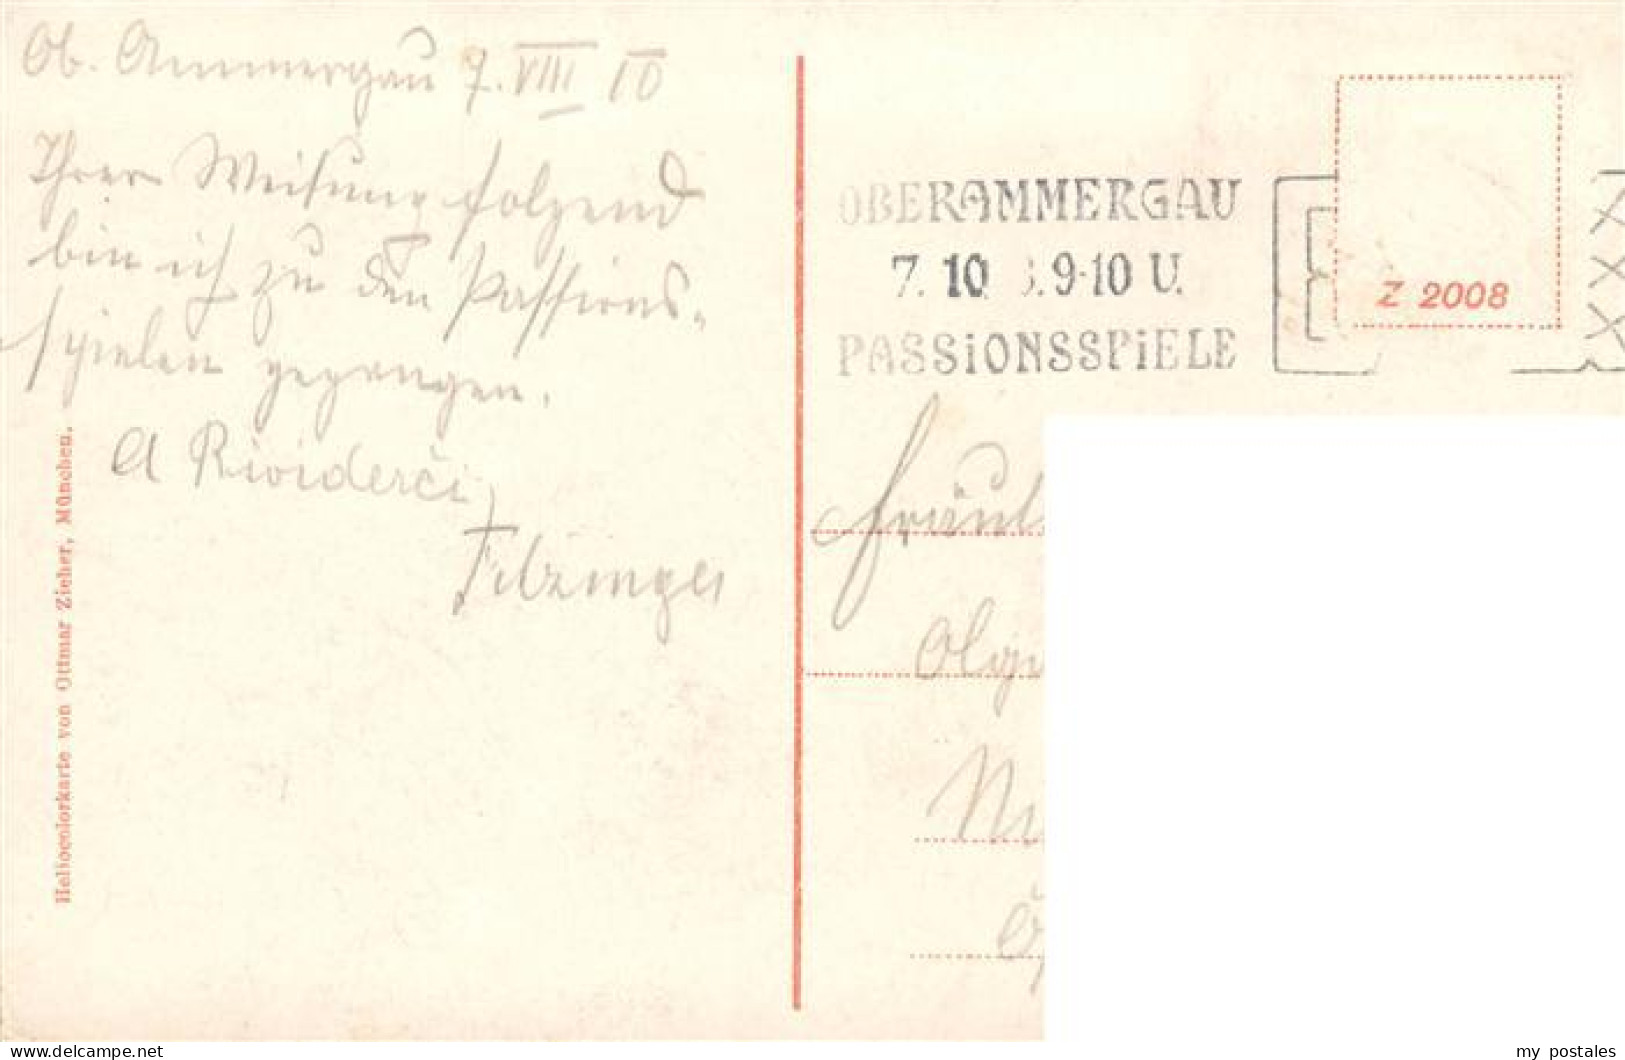 Ob. Ammergau 7. VIII 10
Ihrer Weisung folgend
bin ich zu den Passions-
spielen gegangen.
A Rividerči
Heliocolorkarte von Ottmar Zieher, München.
OBERAMMERGAU
7. 10 9-10 U.
PASSiONSSPiELE
Z 2008
Fräul
Olg
www.delcampe.net
my_postales